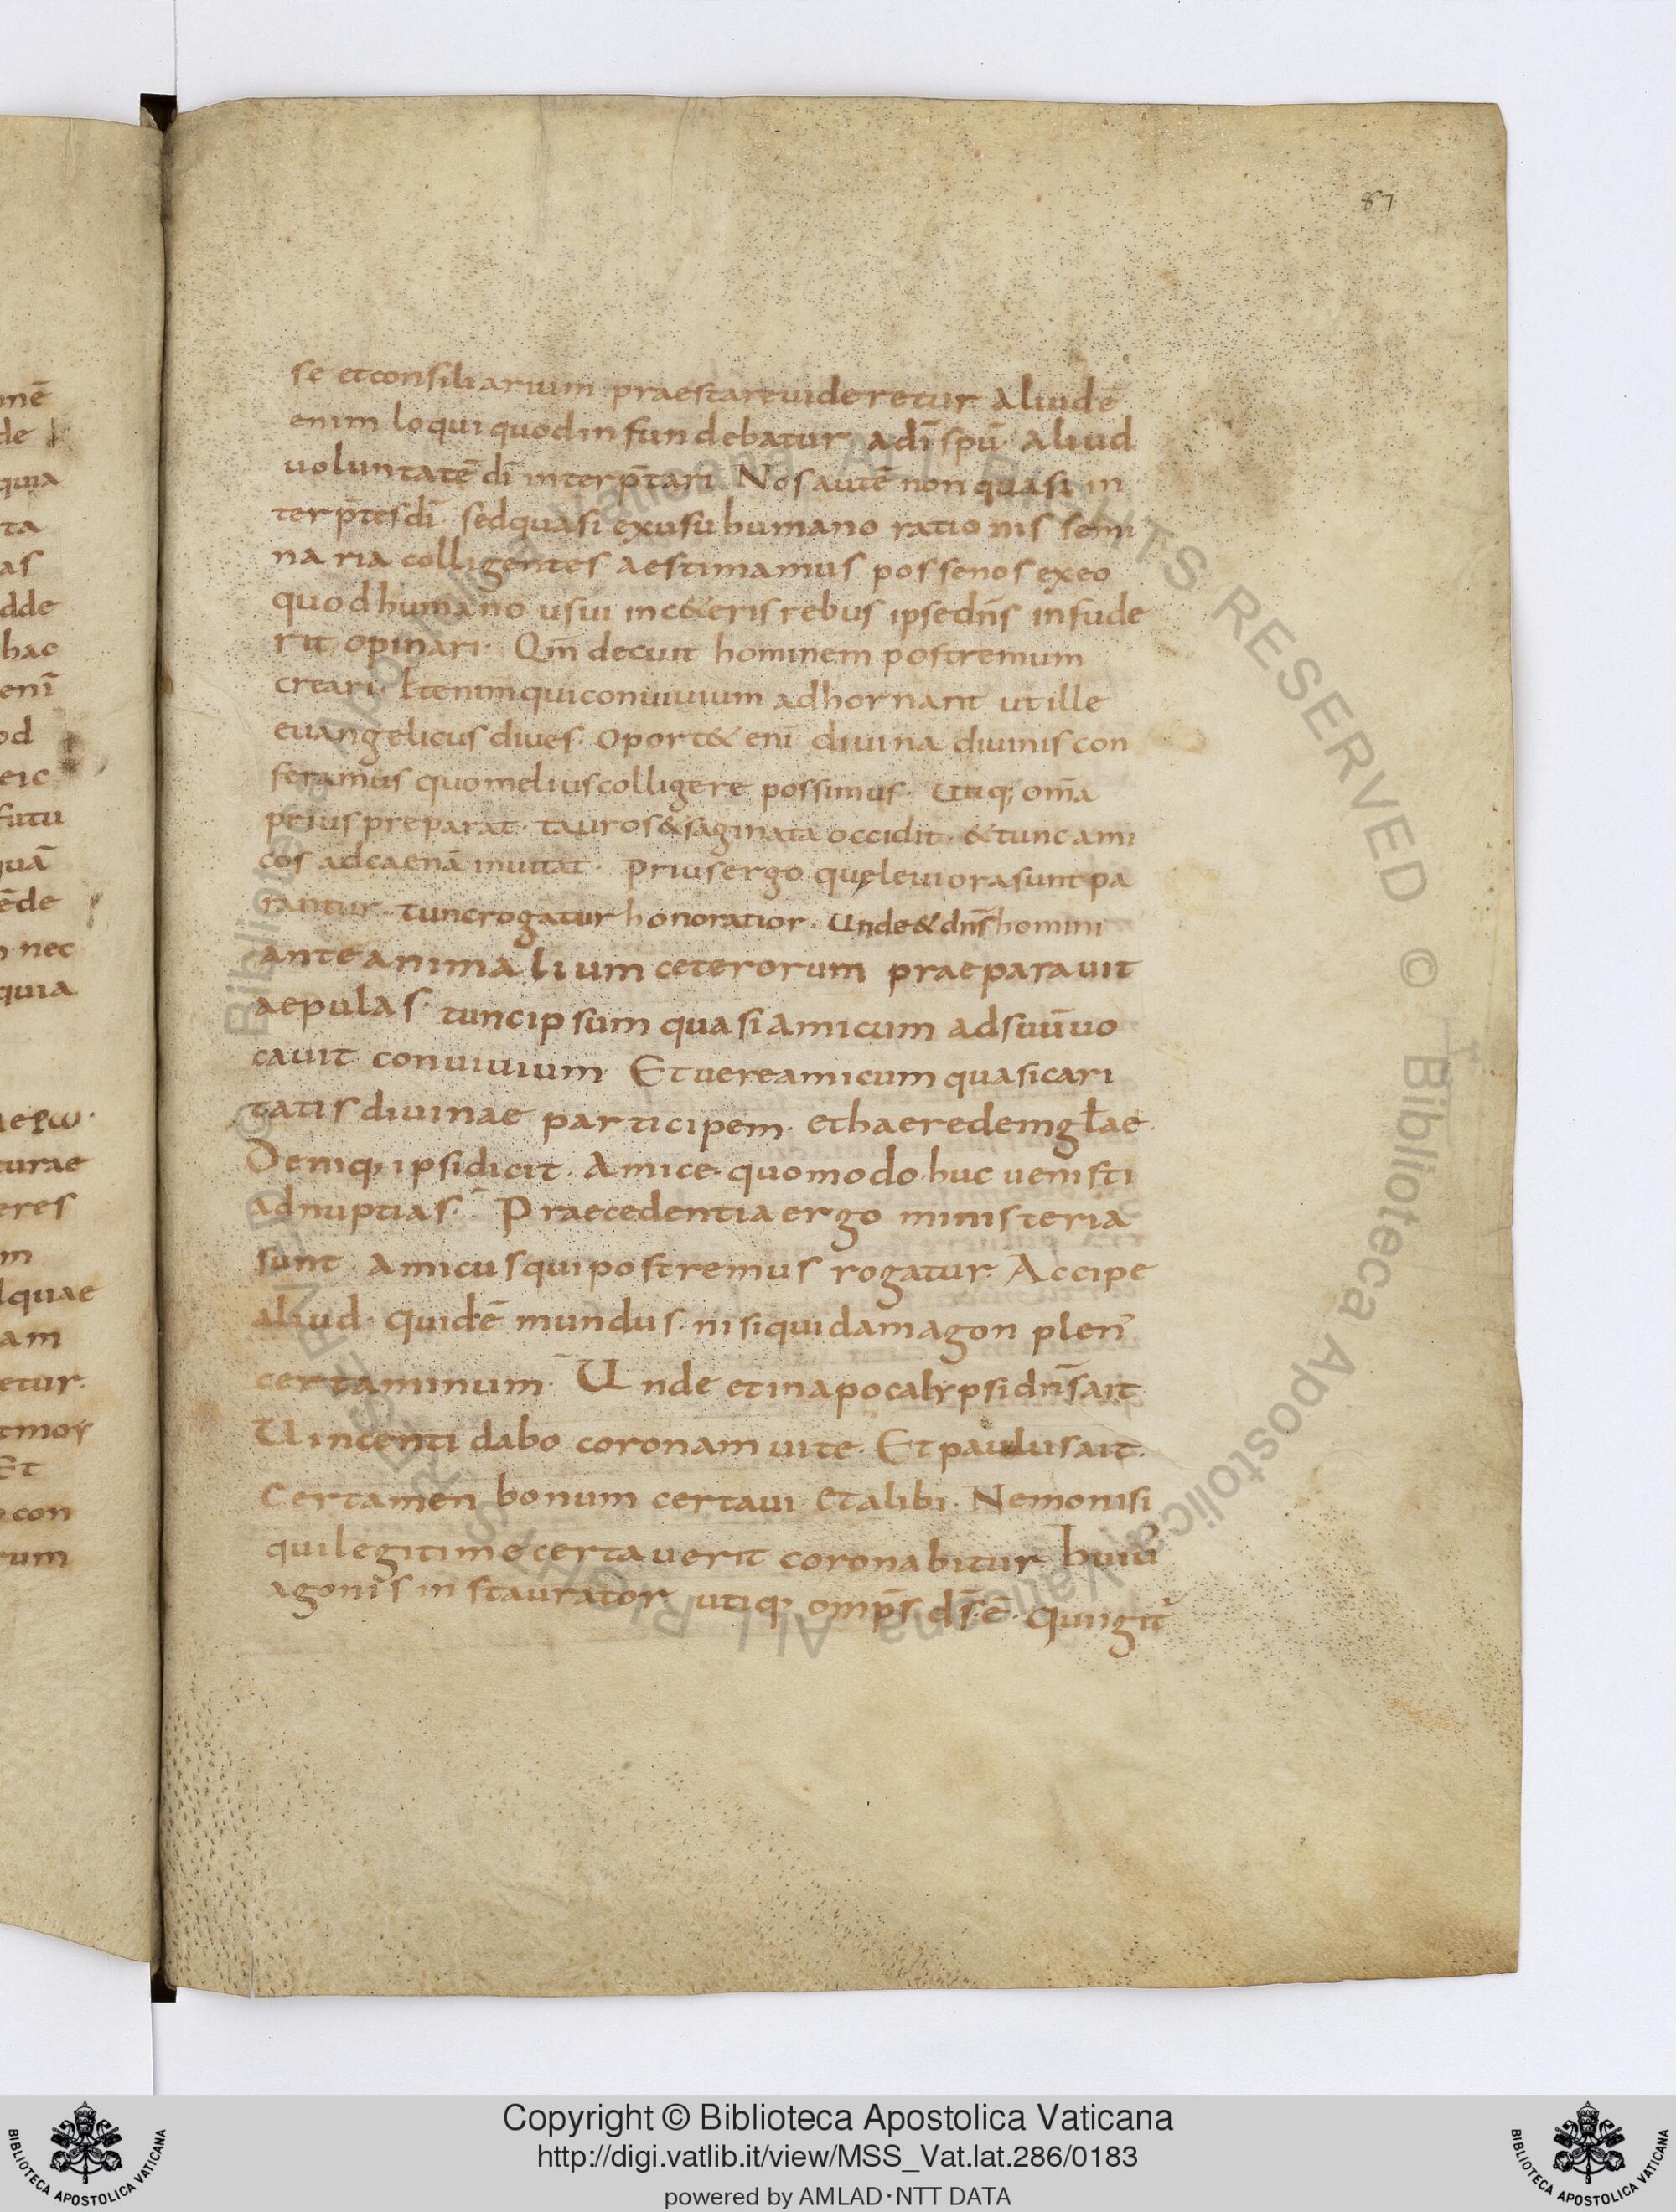 87
se et consiliarium praestare uideretur aliud ē
enim loqui quod infundebatur a dī spū· aliud
uoluntatē dī interp̄tari Nos autē non quasi in
terp̄tes dī· sed quasi ex usu humano rationis semi
naria colligentes aestimamus posse nos ex eo
quod humano usui in c&eris rebus ipse dn̄s infude
rit opinari· Qm̄ decuit hominem postremum
creari· Etenim qui conuiuium adhornant ut ille
euangelicus diues· Oport& enī diuina diuinis con
feramus quo melius colligere possimus· Utiq; om̄a
prius preparat· tauros & saginata occidit· & tunc ami
cos ad caenā inuitat· Prius ergo quę leuiora sunt pa
rantur· tunc rogatur honoratior· Unde & dn̄s homini
ante animalium ceterorum praeparauit
aepulas· tunc ipsum quasi amicum ad suū uo
cauit conuiuium· Et uere amicum quasi cari
tatis diuinae participem· et haeredem gl̄ae·
Deniq; ipsi dicit· Amice· quomodo huc uenisti
ad nuptias· Praecedentia ergo ministeria
sunt· amicus qui postremus rogatur· Accipe
aliud· quid ē mundus· nisi quidam agon plen᾽
certaminum· Unde et in apocalypsi dn̄s ait·
Uincenti dabo coronam uite· Et paulus ait·
Certamen bonum certaui et alibi· Nemo nisi
qui legitime certauerit coronabitur huiu᾽
agonis instaurator utiq; omp̄s ds̄ ē·
mē
de
quia
ta
as
dde
hac
enī
od
eic
futu
quā
ēde
nec
quia
turae
eres
m
quae
am
etur·
Et
con
rum
Copyright © Biblioteca Apostolica Vaticana
http://digi.vatlib.it/view/MSS_Vat.lat.286/0183
powered by AMLAD·NTT DATA
BIBLIOTECA APOSTOLICA VATICANA
BIBLIOTECA APOSTOLICA VATICANA
© Biblioteca Apostolica Vaticana ALL RIGHTS RESERVED
© Biblioteca Apostolica Vaticana ALL RIGHTS RESERVED